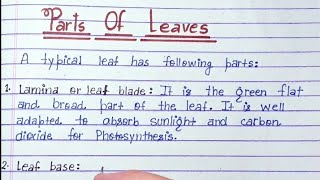 Parts Of Leaves
A typical leaf has following parts:
1. Lamina or leaf blade: It is the green flat
and broad part of the leaf. It is well
adapted to absorb sunlight and carbon
dioxide for Photosynthesis.
2. Leaf base: